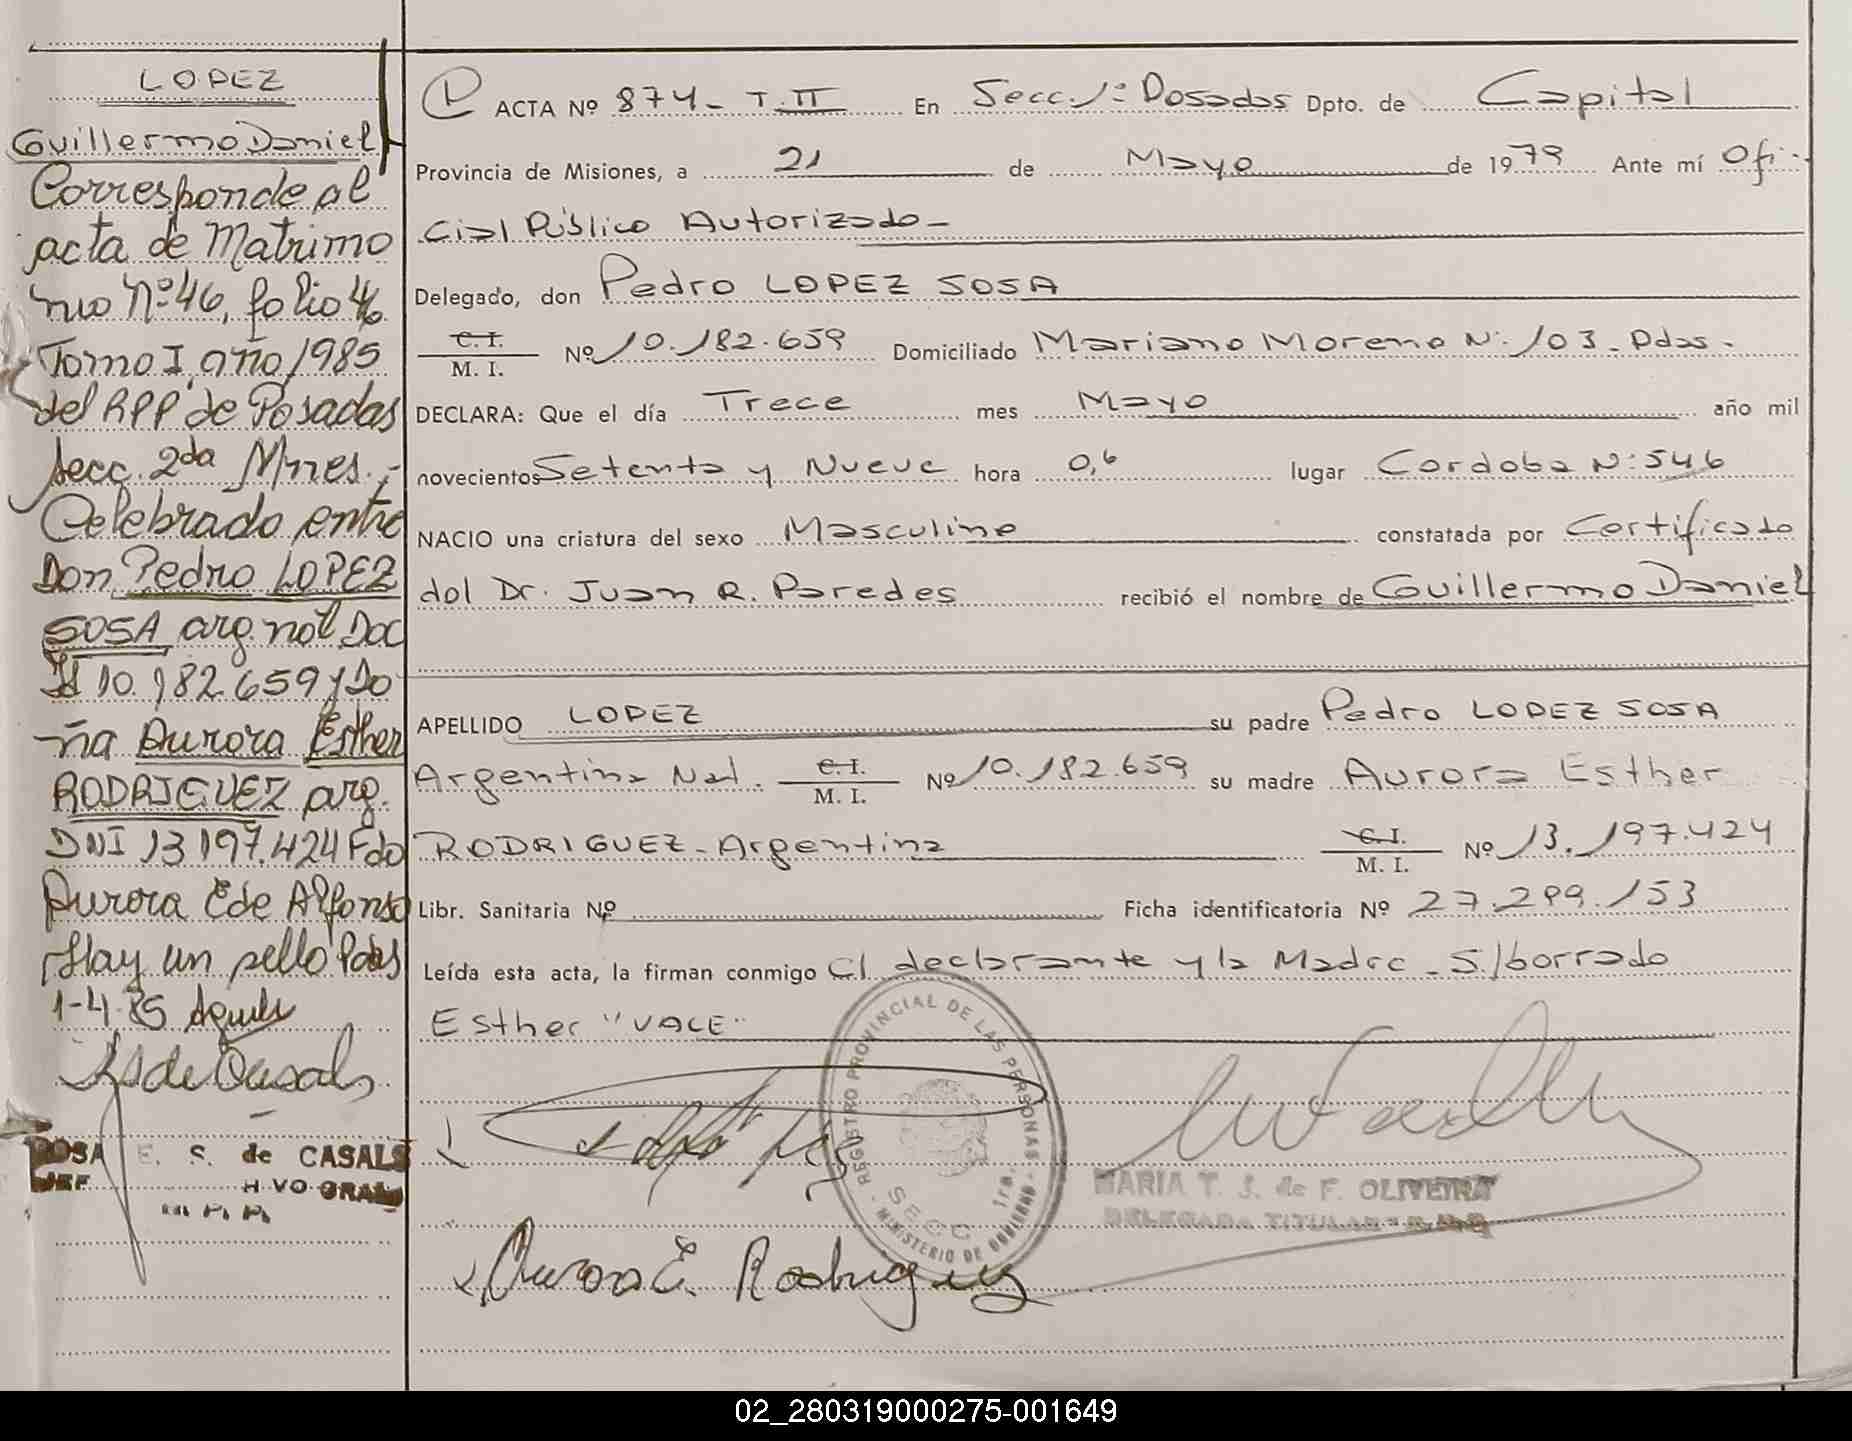 LOPEZ
Guillermo Daniel
Corresponde al
acta de Matrimo
nio Nº 46, folio 46
Tomo I, año 1985
del RPP de Posadas
secc. 2da Mnes.-
Celebrado entre
Don Pedro LOPEZ
SOSA arg. nat. Doc
Id 10.182.659 y Do
ña Aurora Esther
RODRIGUEZ arg.
DNI 13.197.424 Fdo
Aurora E de Alfonso
Hay un sello Pdas
1-4-85
ROSA E. S. de CASALS
ACTA Nº 874- T.II En Secc. 1º Posadas Dpto. de Capital
Provincia de Misiones, a 21 de Mayo de 1979 Ante mí Ofi-
cial Público Autorizado-
Delegado, don Pedro LOPEZ SOSA
C. I.
M. I. Nº 10.182.659 Domiciliado Mariano Moreno Nº 103- Pdas.
DECLARA: Que el día Trece mes Mayo año mil
novecientos Setenta y Nueve hora 0,6 lugar Cordoba Nº 546
NACIO una criatura del sexo Masculino constatada por Certificado
del Dr. Juan R. Paredes recibió el nombre de Guillermo Daniel
APELLIDO LOPEZ su padre Pedro LOPEZ SOSA
Argentina Nat. C. I.
M. I. Nº 10.182.659 su madre Aurora Esther
RODRIGUEZ- Argentina C. I.
M. I. Nº 13.197.424
Libr. Sanitaria Nº Ficha identificatoria Nº 27.299.153
Leída esta acta, la firman conmigo el declarante y la Madre - S/borrado
Esther "VALE"
REGISTRO PROVINCIAL DE LAS PERSONAS
SECC. 1ra.
MINISTERIO DE GOBIERNO
MARIA T. J. de F. OLIVEIRA
DELEGADA TITULAR
Aurora E. Rodriguez
02_280319000275-001649